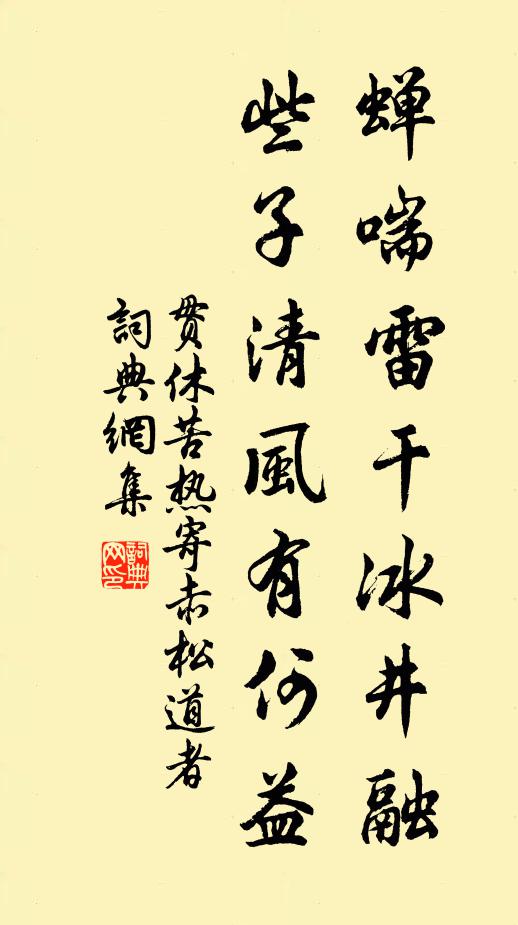 蝉喘雷干冰井融
些子清風有何益
贯休苦热寄赤松道者
詞典網集
詞典网印